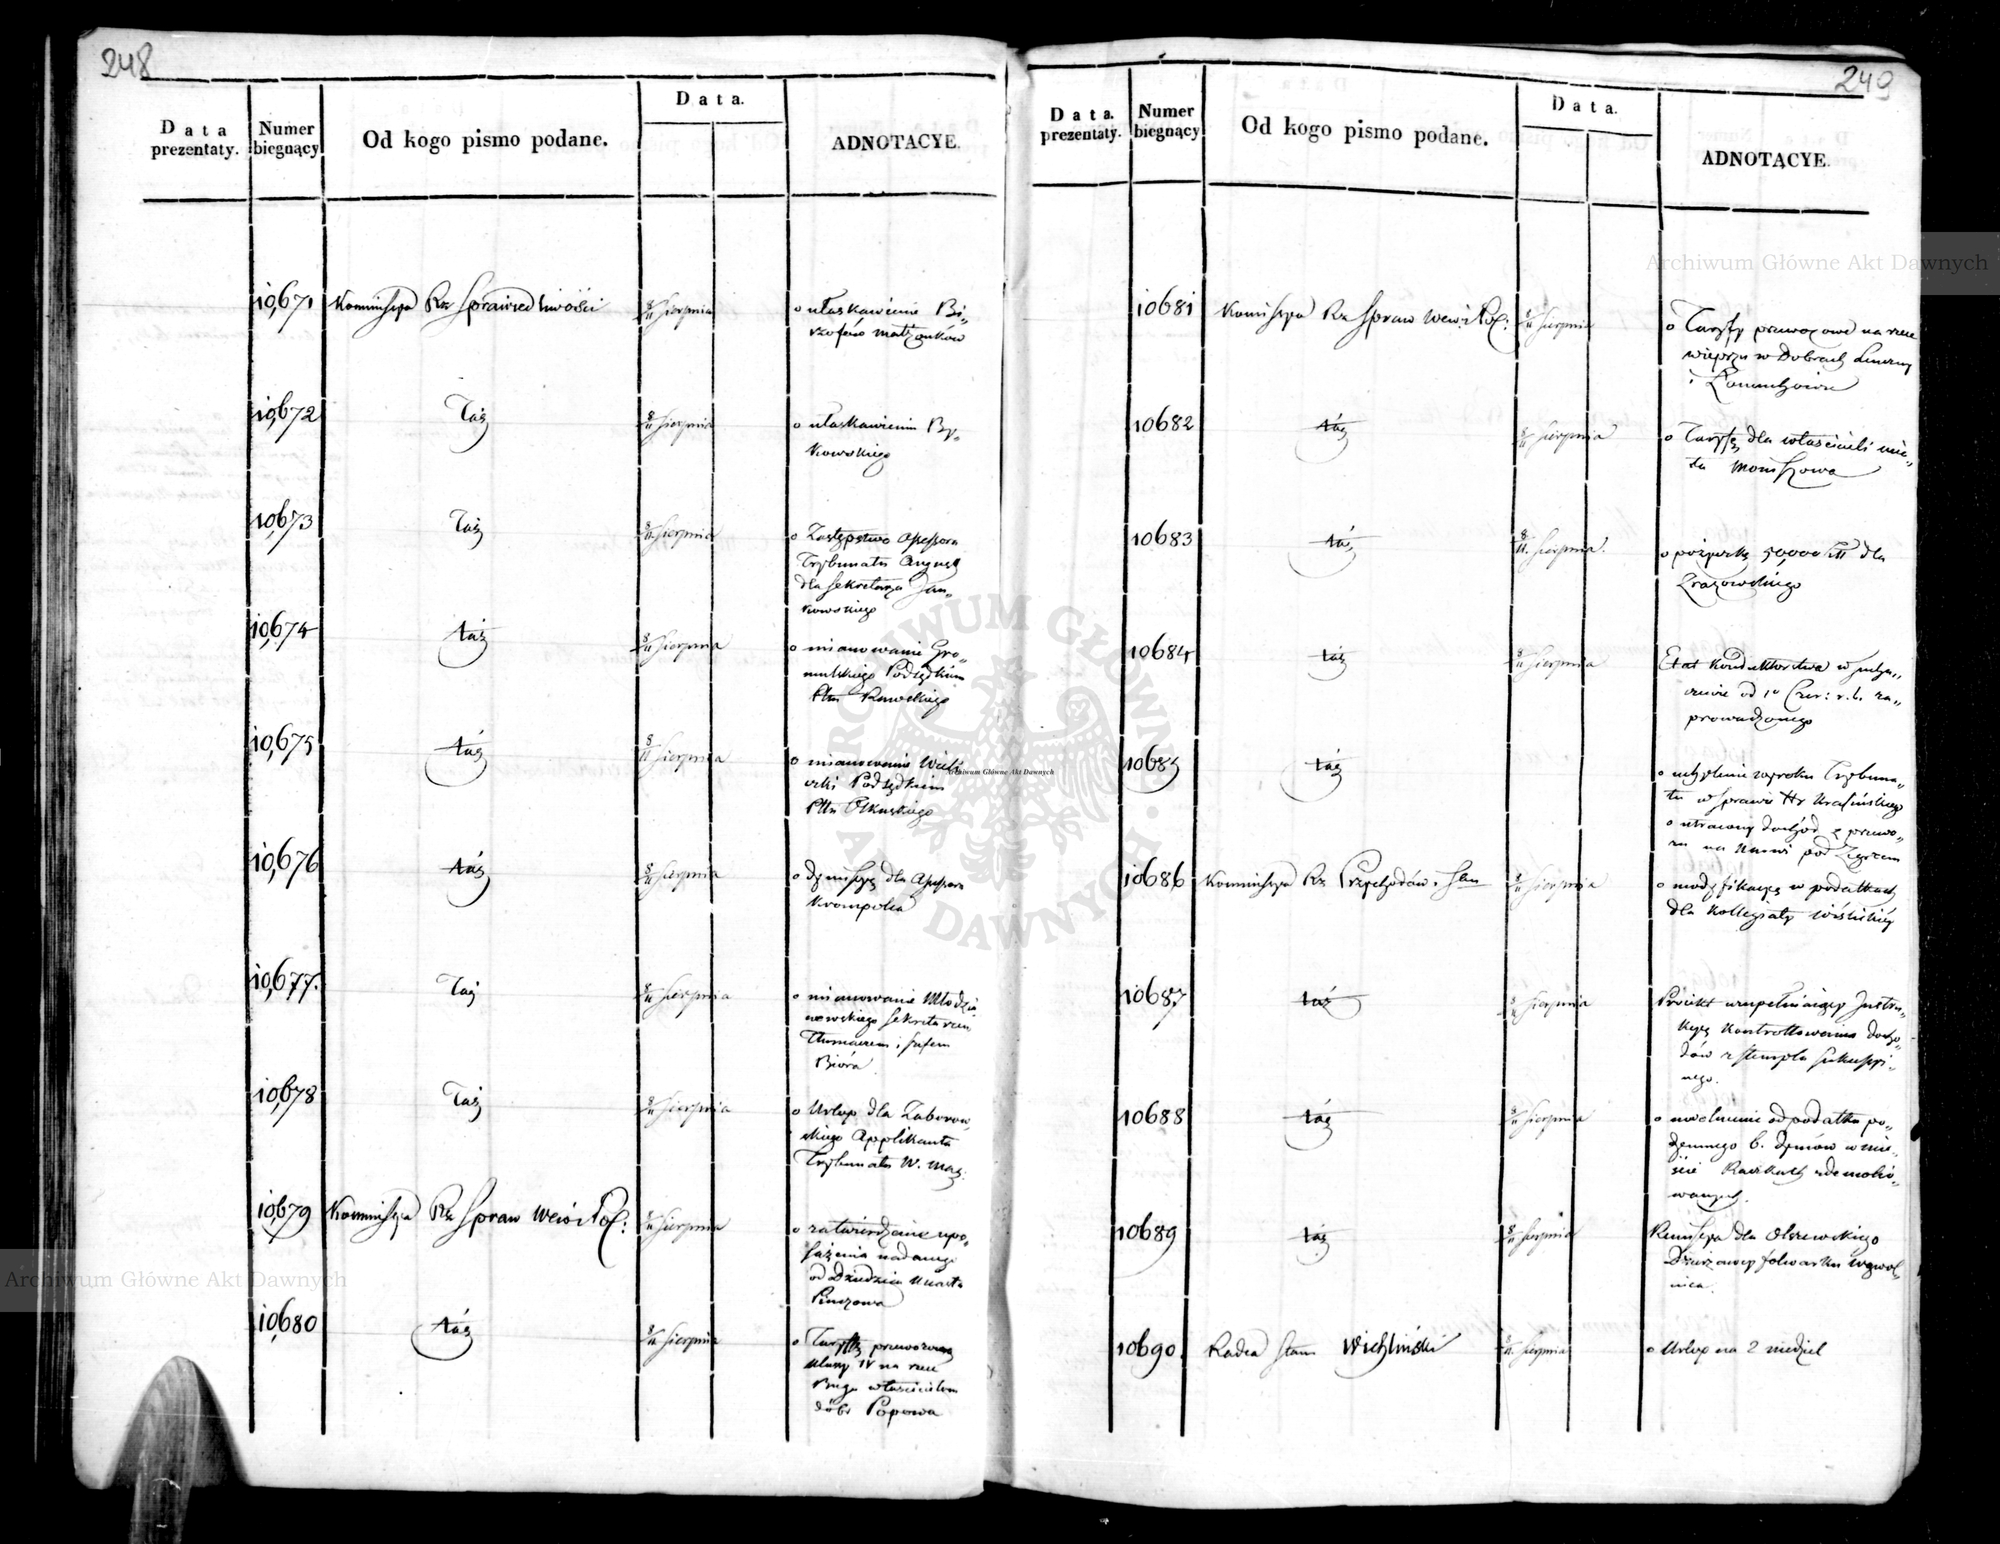 248
Data prezentaty.
Numer biegnący
Od kogo pismo podane.
Data.
ADNOTACYE.
10,671 Kommissya Rz Sprawiedliwości 8/11 Sierpnia o ułaskawienie Bi-
małżonków
10,672 Taż 8/11 Sierpnia o ułaskawienie By-
kowskiego
10,673 Taż 8/11 Sierpnia o Zastępstwo Assessora
Trybunału August
dla Sekretarza Jan-
kowskiego
10,674 táż 8/11 Sierpnia o mianowanie Gro-
mulskiego Podsędkiem
Pttu Rawskiego
10,675 táż 8/11 Sierpnia o mianowanie
Podsędkiem
Pttu Olkuskiego
10,676 táż 8/11 Sierpnia o dymissyę dla Assessora
Krompolca
10,677. Taż 8/11 Sierpnia o mianowanie Młodzia
nowskiego Sekretarzem
Tłumaczem i Szefem
Bióra.
10,678 Taż 8/11 Sierpnia o Urlop dla Zaborow
skiego Applikanta
Trybunału W. Maz.
10,679 Kommissya Rz Spraw Wew i Pol: 8/11 Sierpnia o zatwierdzenie upo-
sażenia nadanego
od Dziedzica Miasta
Pinczowa
10,680 táż 8/11 Sierpnia o Taryffę przewozową
klassy IV na rzece
Bugu właścicielom
dóbr Popowa
249
Data. prezentaty.
Numer biegnący
Od kogo pismo podane.
Data.
ADNOTACYE.
10681 Kommissya Rz Spraw Wew i Pol: 8/11 Sierpnia o Taryfy przewozowe na rzece
wieprzu w Dobrach
i
10682 táż 8/11 Sierpnia o Taryffę dla właścicieli mia-
sta Moniszowa
10683 táż 8/11. Sierpnia. o pożyczkę 50,000 dla
Zrazowskiego
10684 táż 8/11 Sierpnia Etat Konduktorstwa w
od 1o Czer: r. b. za-
prowadzonego
10685 táż 8/11 Sierpnia o uchylenie wyroku Trybuna-
łu w Sprawie Hr Krasińskiego
o utracony dochód z przewo-
zu na Narwi pod Zegrzem
10686 Kommissya Rz Przychodów i Skar 8/11 Sierpnia o modyfikacyę w podatkach
dla Kollegiaty wiślickiéy
10687 táż 8/11 Sierpnia Proiekt uzupełniaiący Instru-
kcyę kontrollowania docho-
dów z stempla
nego.
10688 táż 8/11 Sierpnia o uwolnienie od podatku po-
dymnego 6. dymów w mie-
ście zdemolio-
wanych.
10689 táż 8/11 Sierpnia Remissya dla Olszewskiego
Dzierżawcy folwarku
10690. Radca Stanu Wichliński 8/11. Sierpnia o Urlop na 2 niedziel
Archiwum Główne Akt Dawnych
Archiwum Główne Akt Dawnych
Archiwum Główne Akt Dawnych
ARCHIWUM GŁÓWNE AKT DAWNYCH